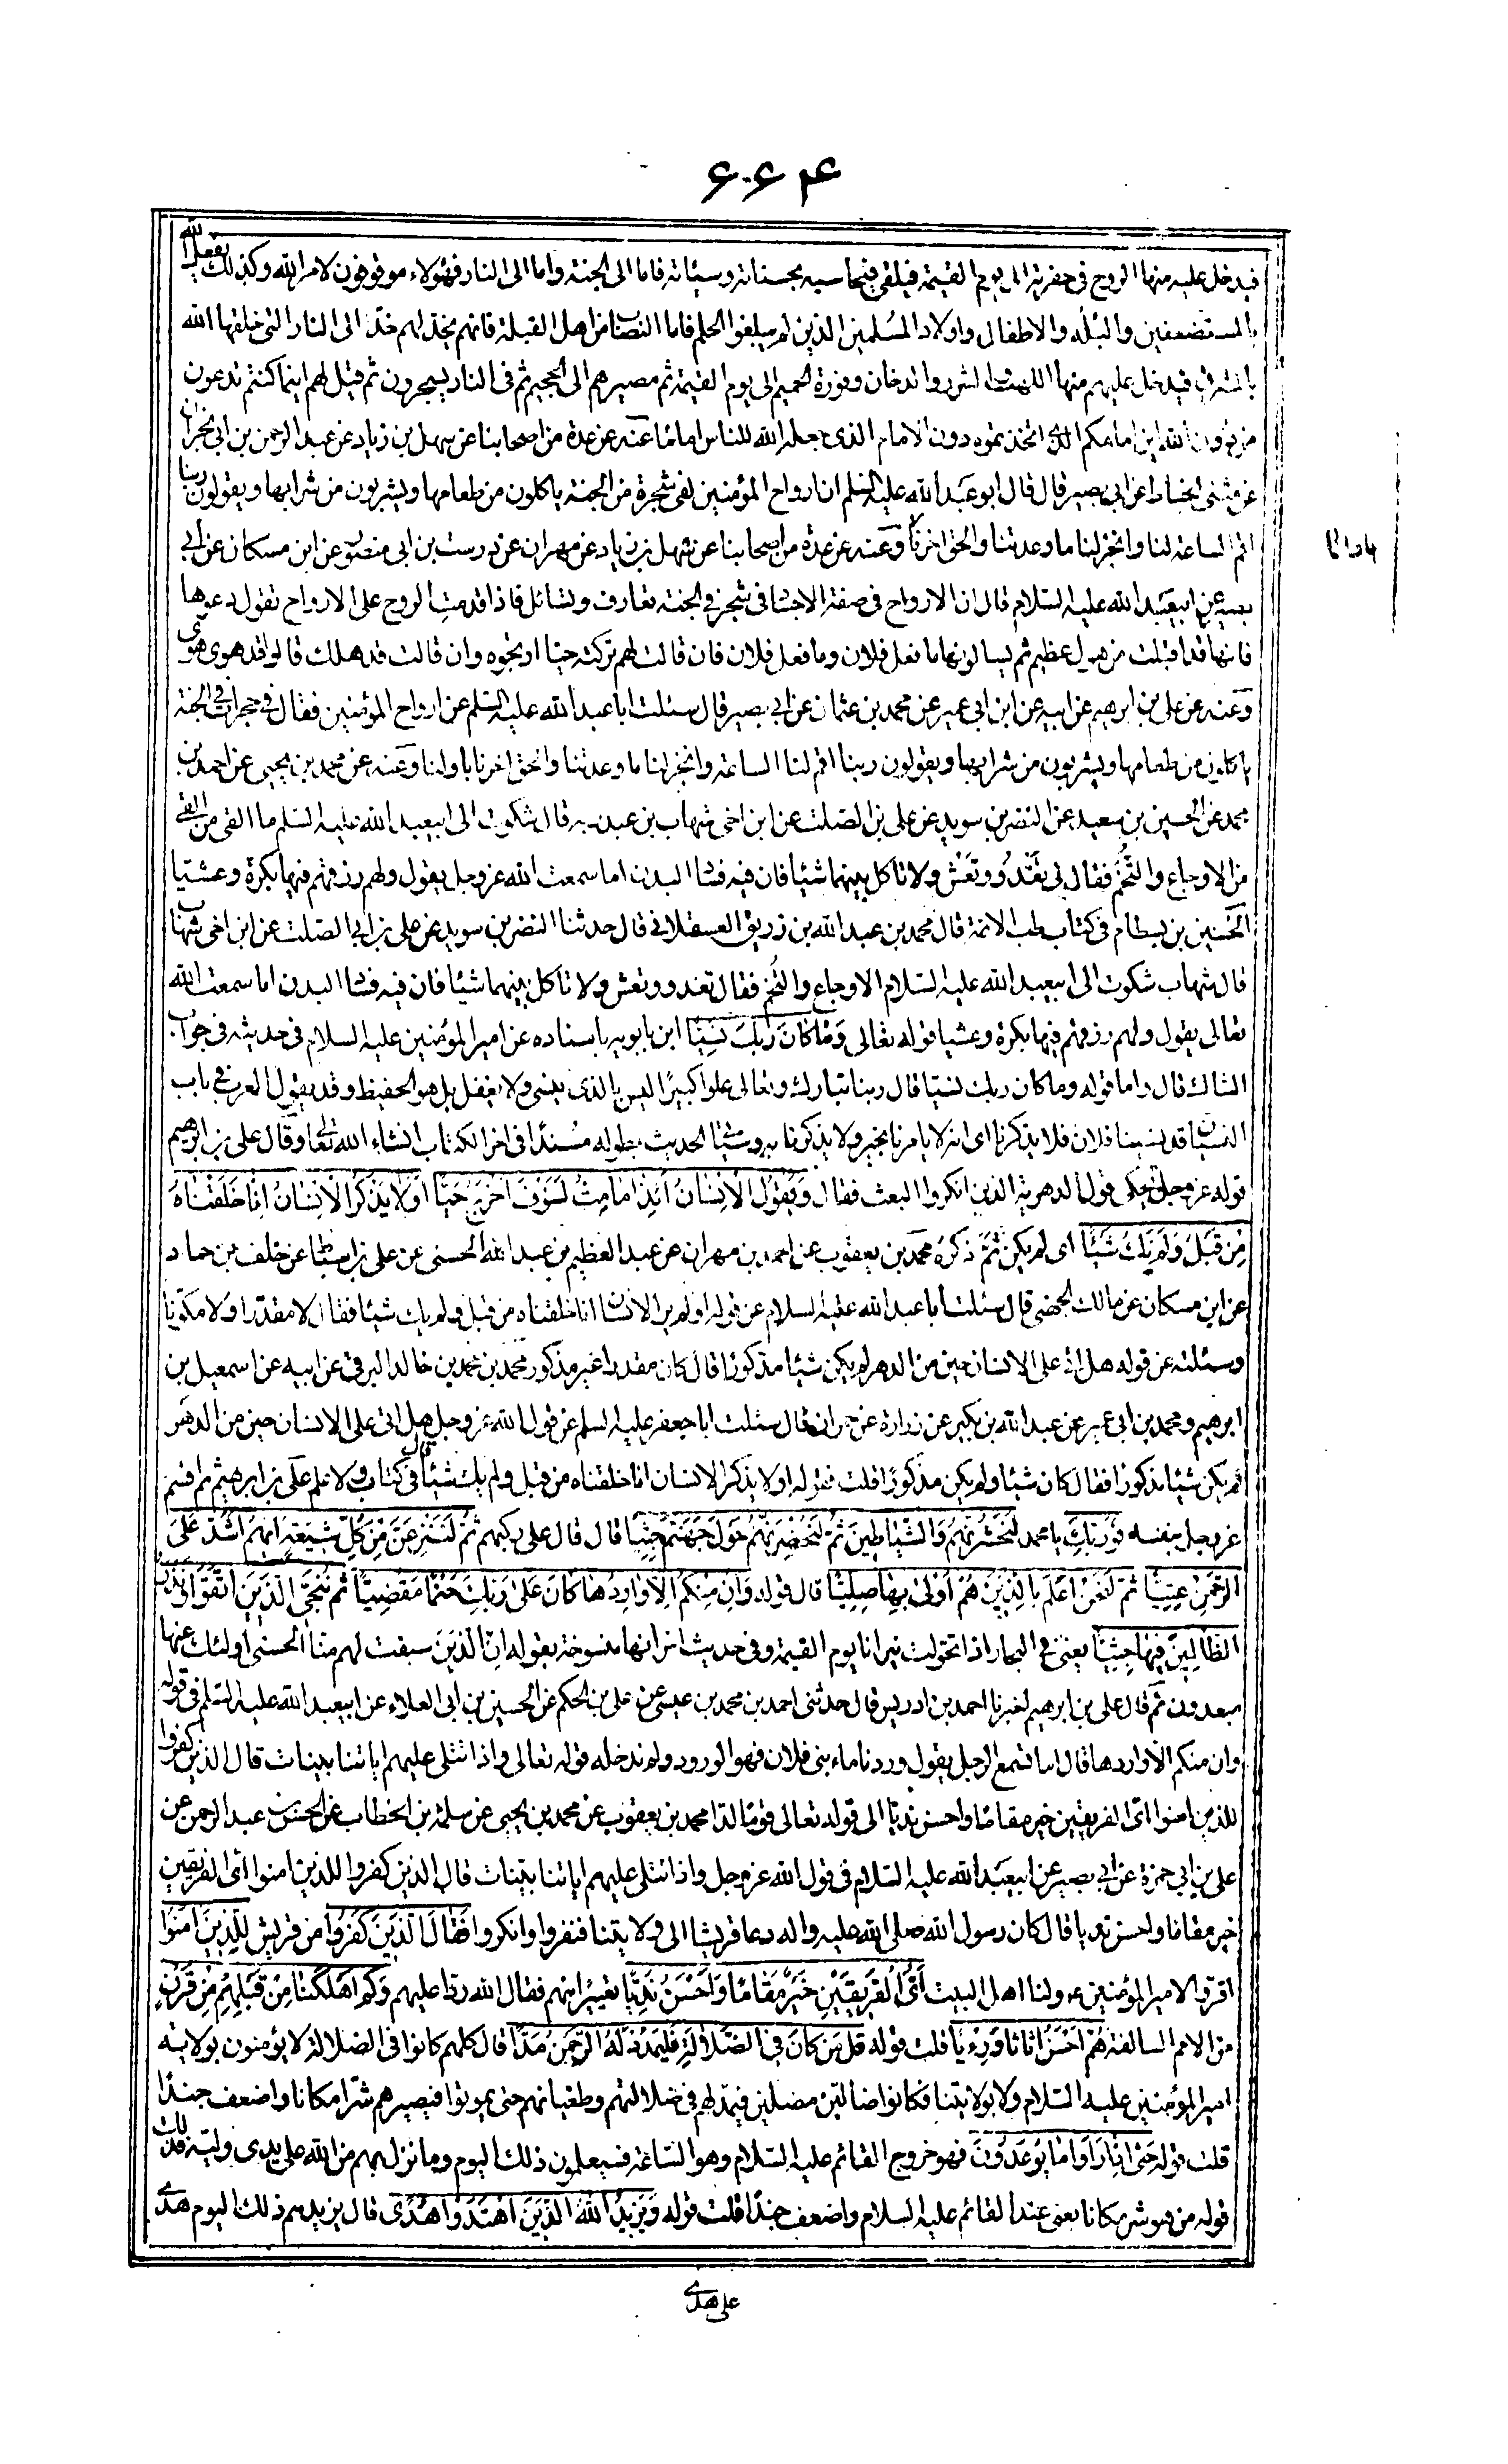 ۶۶۴
فيدخل عليه منها الروح في حفرته الى يوم القيمة فيلقى فيحاسبه بحسناته وسيئاته فاما الى الجنة واما الى النار فهؤلاء موقوفون لامر الله وكذلك يفعل الله
بالمستضعفين والبله والاطفال واولاد المسلمين الذين لم يبلغوا الحلم فاما النصاب من اهل القبلة فانهم يخد لهم خد الى النار التي خلقها الله
بالمشرق فيدخل عليهم منها اللهب والشرر والدخان وفورة الحميم الى يوم القيمة ثم مصيرهم الى الجحيم ثم في النار يسجرون ثم قيل لهم اينما كنتم تدعون
من دون الله اين امامكم الذي اتخذتموه دون الامام الذي جعله الله للناس اماما عنه عن عدة من اصحابنا عن سهل بن زياد عن عبد الرحمن بن ابي نجران
عن مثنى الحناط عن ابي بصير قال قال ابو عبد الله عليه السلم ان ارواح المؤمنين لفي شجرة من الجنة ياكلون من طعامها ويشربون من شرابها ويقولون ربنا
اقم الساعة لنا وانجز لنا ما وعدتنا والحق اخرنا وعنه عن عدة من اصحابنا عن سهل بن زياد عن مهران عن درست بن ابي منصور عن ابن مسكان عن ابي
باولنا
بصير عن ابيعبد الله عليه السلام قال ان الارواح في صفة الاجساد في شجر في الجنة تعارف وتسائل فاذا قدمت الروح على الارواح تقول دعوها
فانها قد اقبلت من هول عظيم ثم يسالونها ما فعل فلان وما فعل فلان فان قالت لهم تركته حيا ارتجوه وان قالت قد هلك قالوا قد هوى هوى
وعنه عن علي بن ابرهيم عن ابيه عن ابن ابي عمير عن محمد بن عثمان عن ابي بصير قال سئلت ابا عبد الله عليه السلم عن ارواح المؤمنين فقال في حجرات في الجنة
ياكلون من طعامها ويشربون من شرابها ويقولون ربنا اقم لنا الساعة وانجز لنا ما وعدتنا والحق اخرنا باولنا وعنه عن محمد بن يحيى عن احمد بن
محمد عن الحسين بن سعيد عن النضر بن سويد عن علي بن الصلت عن ابن اخي شهاب بن عبد ربه قال شكوت الى ابيعبد الله عليه السلم ما القى من
من الاوجاع والتخم فقال لي تغد وتعش ولا تاكل بينهما شيئا فان فيه فساد البدن اما سمعت الله عز وجل يقول ولهم رزقهم فيها بكرة وعشيا
الحسين بن بسطام في كتاب طب الائمة قال محمد بن عبد الله بن زريق العسقلاني قال حدثنا النضر بن سويد عن علي بن ابي الصلت عن ابن اخي شهاب
قال شهاب شكوت الى ابيعبد الله عليه السلام الاوجاع والتخم فقال تغد وتعش ولا تاكل بينهما شيئا فان فيه فساد البدن اما سمعت الله
تعالى يقول ولهم رزقهم فيها بكرة وعشيا قوله تعالى وَمَا كَانَ رَبُّكَ نَسِيًّا ابن بابويه باسناده عن امير المؤمنين عليه السلام في حديثه في جواب
الشاك قال واما قوله وما كان ربك نسيا قال ربنا تبارك وتعالى علوا كبيرا ليس بالذي ينسى ولا يغفل بل هو الحفيظ وقد يقول العرب في باب
النسيان قد نسينا فلان فلا يذكرنا اى انه لا يامر لنا بخير ولا يذكرنا به الحديث بطوله مسندا في اخر الكتاب انشاء الله تعالى وقال علي بن ابرهيم
قوله عز وجل يحكى قول الدهرية الذين انكروا البعث فقال وَيَقُولُ الْاِنْسَانُ أَئِذَا مَا مِتُّ لَسَوْفَ اُخْرَجُ حَيًّا أَوَلَا يَذْكُرُ الْاِنْسَانُ اَنَّا خَلَقْنَاهُ
مِنْ قَبْلُ وَلَمْ يَكُ شَيْئًا اى لم يكن ثم ذكره محمد بن يعقوب عن احمد بن مهران عن عبد العظيم بن عبد الله الحسنى عن علي بن اسباط عن خلف بن حماد
عن ابن مسكان عن مالك الجهنى قال سئلت ابا عبد الله عليه السلام عن قوله اولم ير الانسان انا خلقناه من قبل ولم يك شيئا فقال لا مقدرا ولا مكونا
وسئلته عن قوله هل اتى على الانسان حين من الدهر لم يكن شيئا مذكورا قال كان مقدرا غير مذكور محمد بن محمد بن خالد البرقي عن ابيه عن اسمعيل بن
ابرهيم ومحمد بن ابي عمير عن عبد الله بن بكير عن زرارة عن حمران قال سئلت ابا جعفر عليه السلم عن قول الله عز وجل هل اتى على الانسان حين من الدهر
لم يكن شيئا مذكورا فقال كان شيئا ولم يكن مذكورا قلت فقوله اولا يذكر الانسان انا خلقناه من قبل ولم يك شيئا قال في كتاب ولا علم علي بن ابرهيم ثم اقسم
عز وجل بنفسه فَوَرَبِّكَ يا محمد لَنَحْشُرَنَّهُمْ وَالشَّيَاطِينَ ثُمَّ لَنُحْضِرَنَّهُمْ حَوْلَ جَهَنَّمَ جِثِيًّا قال قال على ركبهم ثُمَّ لَنَنْزِعَنَّ مِنْ كُلِّ شِيعَةٍ اَيُّهُمْ اَشَدُّ عَلَى
الرَّحْمٰنِ عِتِيًّا ثُمَّ لَنَحْنُ اَعْلَمُ بِالَّذِينَ هُمْ اَوْلَى بِهَا صِلِيًّا قال قوله وَاِنْ مِنْكُمْ اِلَّا وَارِدُهَا كَانَ عَلَى رَبِّكَ حَتْمًا مَقْضِيًّا ثُمَّ نُنَجِّي الَّذِينَ اتَّقَوْا وَنَذَرُ
الظَّالِمِينَ فِيهَا جِثِيًّا يعنى في البحار اذا تحولت نيرانا يوم القيمة وفي حديث اخر انها منسوخة بقوله ان الذين سبقت لهم منا الحسنى اولئك عنها
مبعدون ثم قال علي بن ابرهيم اخبرنا احمد بن ادريس قال حدثنى احمد بن محمد بن عيسى عن علي بن الحكم عن الحسين بن ابي العلاء عن ابيعبد الله عليه السلم في قوله
وان منكم الا واردها قال اما تسمع الرجل يقول وردنا ماء بنى فلان فهو الورود ولم ندخله قوله تعالى واذا تتلى عليهم اياتنا بينات قال الذين كفروا
للذين امنوا اى الفريقين خير مقاما واحسن نديا الى قوله تعالى قوما لدا محمد بن يعقوب عن محمد بن يحيى عن سلمة بن الخطاب عن الحسن بن عبد الرحمن عن
علي بن ابي حمزة عن ابي بصير عن ابيعبد الله عليه السلام في قول الله عز وجل واذا تتلى عليهم اياتنا بينات قال الذين كفروا للذين امنوا اى الفريقين
خير مقاما واحسن نديا قال كان رسول الله صلى الله عليه واله دعا قريشا الى ولايتنا فنفروا وانكروا فَقَالَ الَّذِينَ كَفَرُوا من قريش لِلَّذِينَ آمَنُوا
اقروا لامير المؤمنين ع ولنا اهل البيت اَىُّ الْفَرِيقَيْنِ خَيْرٌ مَقَامًا وَاَحْسَنُ نَدِيًّا تعييرا منهم فقال الله ردا عليهم وَكَمْ اَهْلَكْنَا مِنْ قَبْلِهِمْ مِنْ قَرْنٍ
من الامم السالفة هُمْ اَحْسَنُ اَثَاثًا وَرِءْيًا قلت قوله قُلْ مَنْ كَانَ فِي الضَّلَالَةِ فَلْيَمْدُدْ لَهُ الرَّحْمٰنُ مَدًّا قال كلهم كانوا في الضلالة لا يؤمنون بولاية
امير المؤمنين عليه السلام ولا بولايتنا فكانوا ضالين مضلين فيمد لهم في ضلالتهم وطغيانهم حتى يموتوا فيصيرهم شرا مكانا واضعف جندا
قلت قوله حَتَّى اِذَا رَاَوْا مَا يُوعَدُونَ فهو خروج القائم عليه السلام وهو الساعة فسيعلمون ذلك اليوم وما نزل بهم من الله على يدى وليه فذلك
قوله من هو شر مكانا يعنى عند القائم عليه السلام واضعف جندا قلت قوله وَيَزِيدُ اللهُ الَّذِينَ اهْتَدَوْا هُدًى قال يزيدهم ذلك اليوم هدى
على هدى